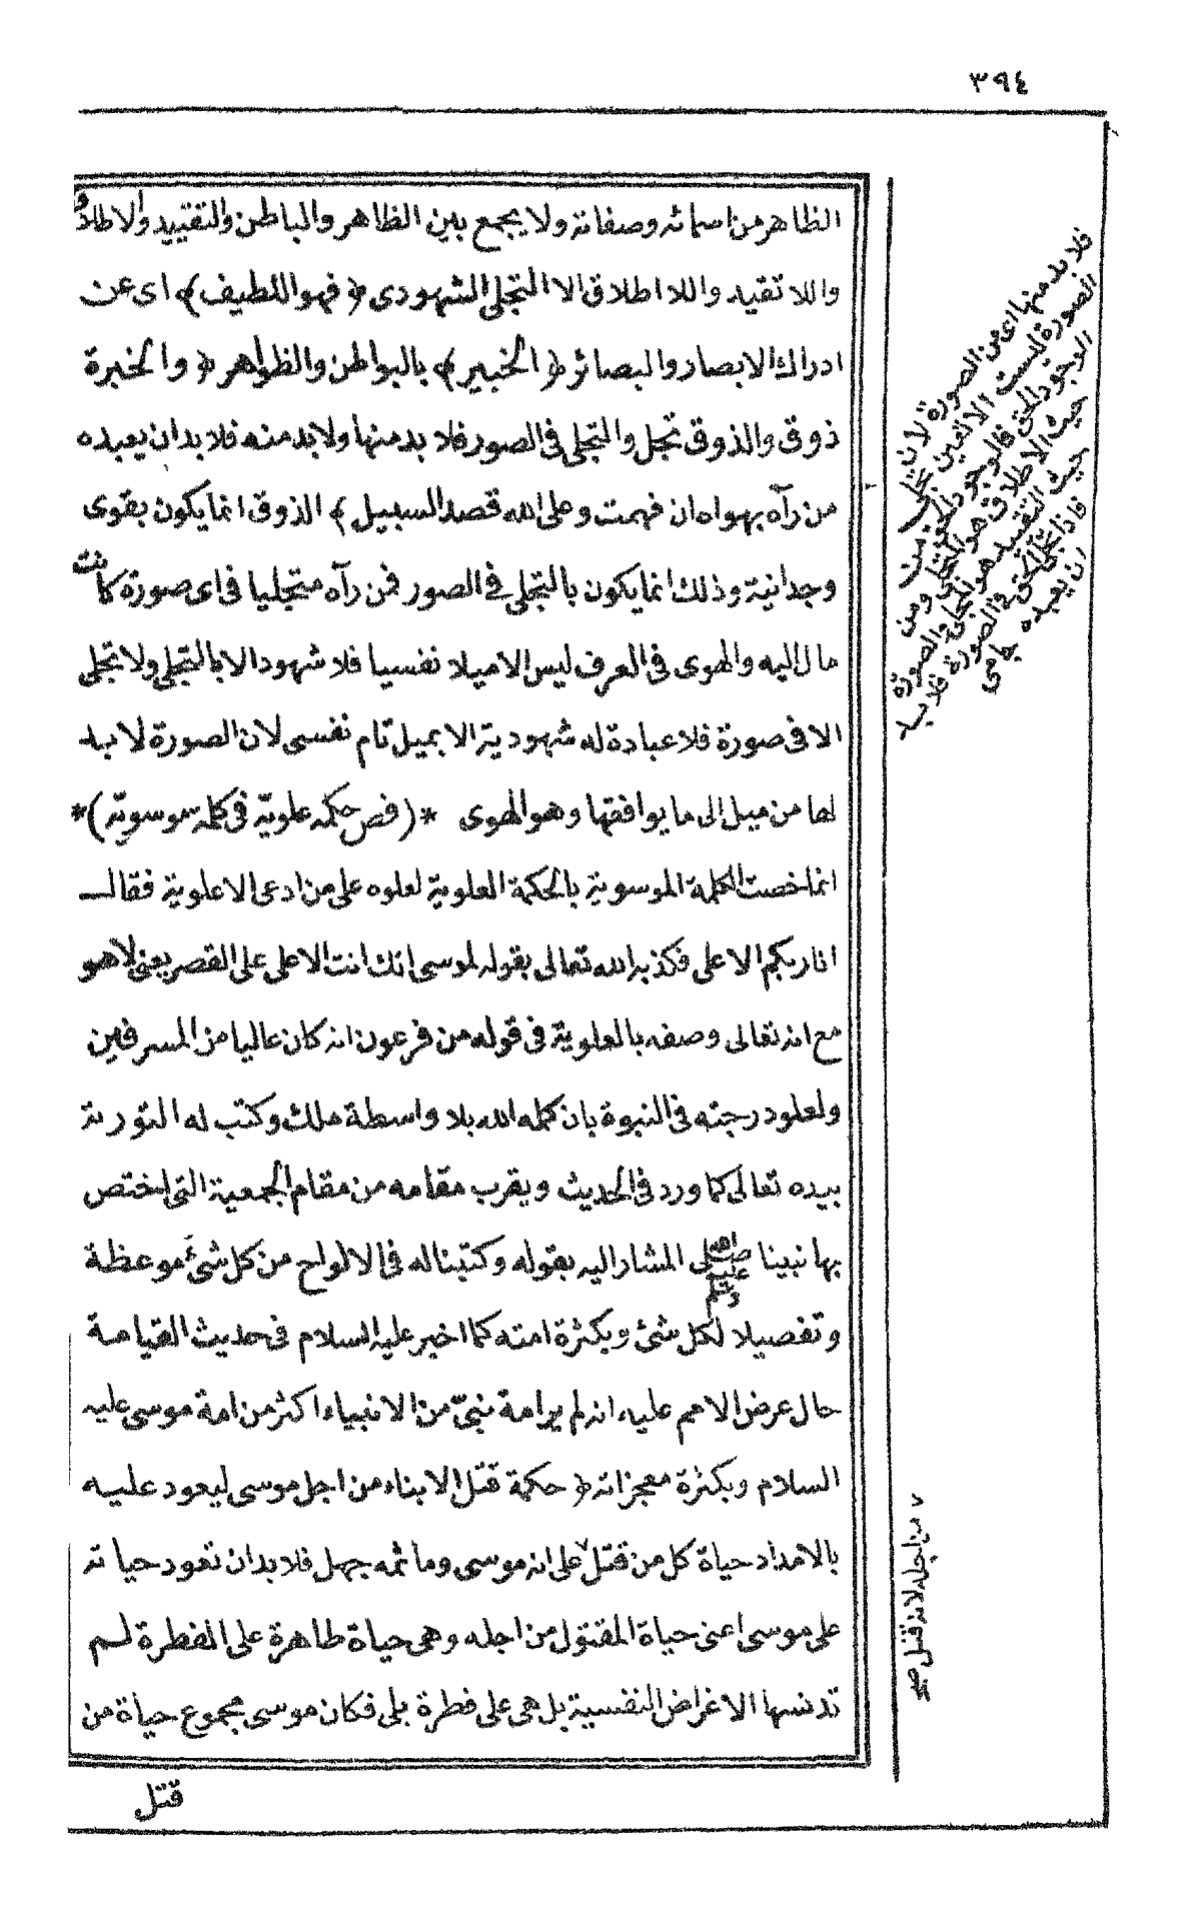 ٣٩٤
الظاهر من اسمائه وصفاته ولا يجمع بين الظاهر والباطن والتقييد والاطلاق
واللا تقيد واللا اطلاق الا التجلى الشهودى ﴿ فهو اللطيف ﴾ اى عن
ادراك الابصار والبصائر ﴿ الخبير ﴾ بالبواطن والظواهر ﴿ والخبرة
ذوق والذوق تجل والتجلى فى الصور فلا بد منها ولا بد منه فلا بد ان يعبده
من رآه بهواه ان فهمت وعلى الله قصد السبيل ﴾ الذوق انما يكون بقوى
وجدانية وذلك انما يكون بالتجلى فى الصور فمن رآه متجليا فى اى صورة كانت
مال اليه والهوى فى العرف ليس الا ميلا نفسيا فلا شهود الا بالتجلى ولا تجلى
الا فى صورة فلا عبادة له شهودية الا بميل تام نفسى لان الصورة لا بد
لها من ميل الى ما يوافقها وهو الهوى * ( فص حكمة علوية فى كلمة موسوية ) *
انما خصت الكلمة الموسوية بالحكمة العلوية لعلوه على من ادعى الاعلوية فقال
انا ربكم الاعلى فكذبه الله تعالى بقوله لموسى انك انت الاعلى على القصر يعنى لا هو
مع انه تعالى وصفه بالعلوية فى قوله من فرعون انه كان عاليا من المسرفين
ولعلو درجته فى النبوة بان كلمه الله بلا واسطة ملك وكتب له التورية
بيده تعالى كما ورد فى الحديث وبقرب مقامه من مقام الجمعية التى اختص
بها نبينا صلى الله عليه وسلم المشار اليه بقوله وكتبنا له فى الالواح من كل شئ موعظة
وتفصيلا لكل شئ وبكثرة امته كما اخبر عليه السلام فى حديث القيامة
حال عرض الامم عليه انه لم ير امة نبىّ من الانبياء اكثر من امة موسى عليه
السلام وبكثرة معجزاته ﴿ حكمة قتل الابناء من اجل موسى ليعود عليه
بالامداد حياة كل من قتل٧ على انه موسى وما ثمه جهل فلا بد ان تعود حياته
على موسى اعنى حياة المقتول من اجله وهى حياة طاهرة على الفطرة لم
تدنسها الاغراض النفسية بل هى على فطرة بلى فكان موسى مجموع حياة من
قتل
فلا بد منها اى من الصورة لان تجلى
الصورة ليست الا تعين
الوجود الحق فالوجود الحق من
حيث الاطلاق هو المتجلى ومن
حيث التقييد هو المجلى والصورة
فاذا تجلى الحق فى الصورة فلا بد
ان يعبده جامى
٧ من اجله لانه قتل صح